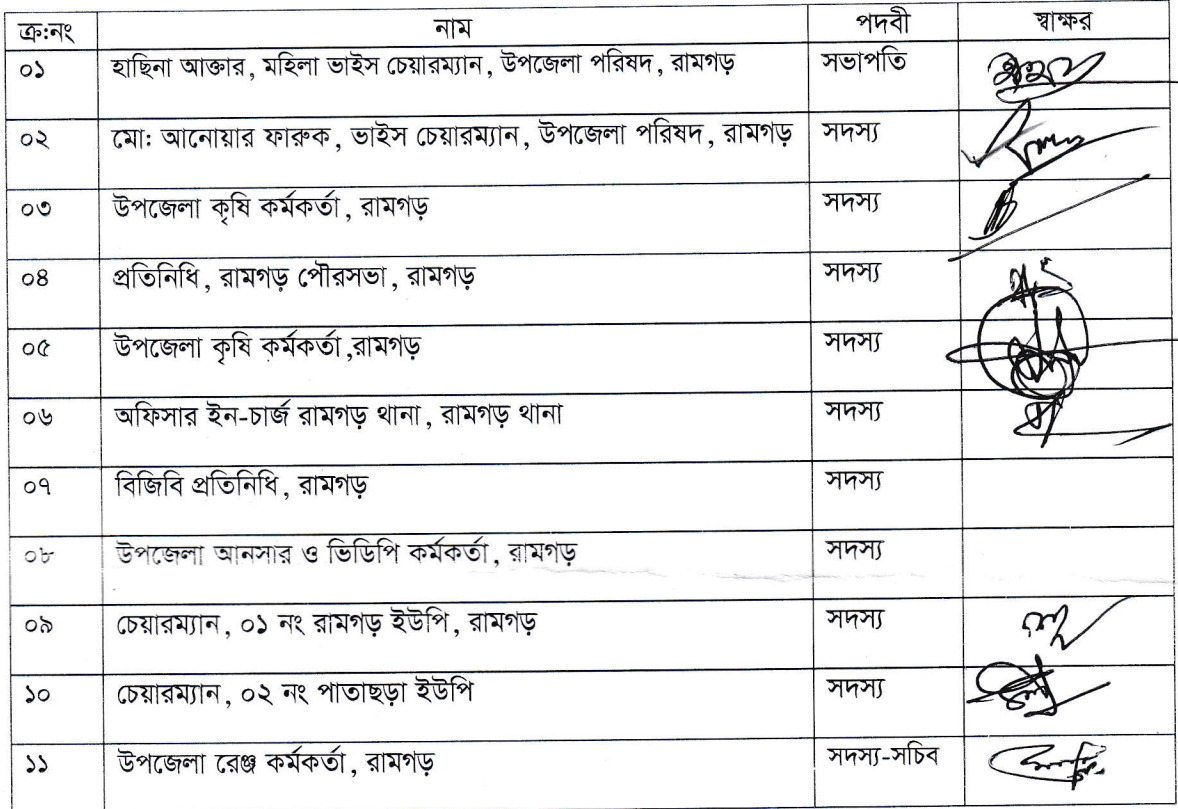 ক্র:নং নাম পদবী স্বাক্ষর
০১ হাছিনা আক্তার, মহিলা ভাইস চেয়ারম্যান, উপজেলা পরিষদ, রামগড় সভাপতি
০২ মো: আনোয়ার ফারুক, ভাইস চেয়ারম্যান, উপজেলা পরিষদ, রামগড় সদস্য
০৩ উপজেলা কৃষি কর্মকর্তা, রামগড় সদস্য
০৪ প্রতিনিধি, রামগড় পৌরসভা, রামগড় সদস্য
০৫ উপজেলা কৃষি কর্মকর্তা,রামগড় সদস্য
০৬ অফিসার ইন-চার্জ রামগড় থানা, রামগড় থানা সদস্য
০৭ বিজিবি প্রতিনিধি, রামগড় সদস্য
০৮ উপজেলা আনসার ও ভিডিপি কর্মকর্তা, রামগড় সদস্য
০৯ চেয়ারম্যান, ০১ নং রামগড় ইউপি, রামগড় সদস্য
১০ চেয়ারম্যান, ০২ নং পাতাছড়া ইউপি সদস্য
১১ উপজেলা রেঞ্জ কর্মকর্তা, রামগড় সদস্য-সচিব